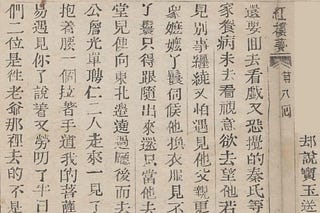 却說寶玉送
紅樓夢 第八回
還要回去看戲又恐擾的秦氏等
家養病未去看視意欲去望他若
見別事纏繞又怕遇見他父親更
衆嬷嬷丫鬟伺候他換衣服見不
丫鬟只得跟隨出來還只當他去
堂見便向東北邊遶過廳後而去
公詹光單聘仁二人走來一見了
抱着腰一個拉着手道我的菩薩
易遇見你了說着又勞叨了半日
們二位是徃老爺那裡去的不是